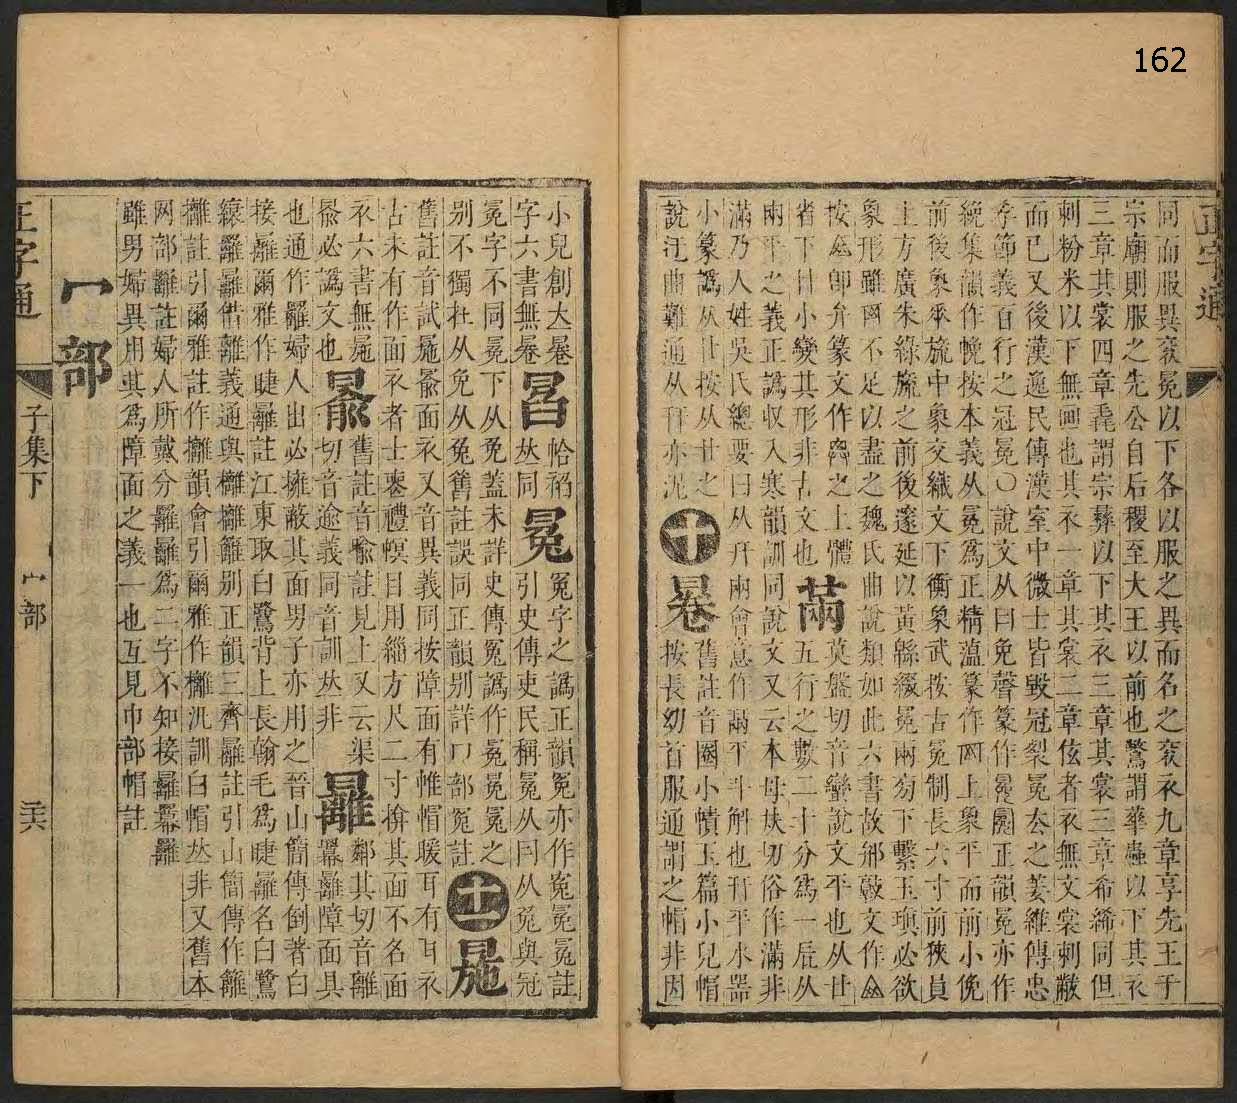 162
正字通
同而服異袞冕以下各以服之異而名之袞衣九章享先王于
宗廟則服之先公自后稷至大王以前也驚謂華蟲以下其衣
三章其裳四章毳謂宗彝以下其衣三章其裳三章希絺同但
刺粉米以下無畫也其衣一章其裳二章伭者衣無文裳刺黻
而已又後漢逸民傳漢室中微士皆毀冠裂冕去之姜維傳忠
孝節義百行之冠冕〇說文从曰免聲篆作 正韻冕亦作
絻集韻作㡈按本義从冕爲正精薀篆作 上象平而前小俛
前後象平旒中象交織文下衡象武按古冕制長六寸前狹員
上方廣朱綠旒之前後邃延以黃緜綴冕兩旁下繫玉瑱必欲
象形雖 不足以盡之魏氏曲說類如此六書故鄉敲文作
按 卽弁篆文作 之上體 㒼 莫盤切音蠻說文平也从廿
省下日小變其形非古文也 五行之數二十分爲一辰从
㒳平之義正譌收入寒韻訓同說文又云本母夫切俗作滿非
滿乃人姓吳氏總要曰从幵㒳會意作 平斗解也幵平水器
小篆譌从廿按从廿之 舊註音圈小幘玉篇小兒帽
說迂曲難通从幵亦泥 十 按長幼首服通謂之帽非因
小兒創厺 恰稻 冤字之譌正韻冤亦作寃冕冤註
字六書無 厺同 冤 引史傳吏民稱冤从冂从兔與冠
冕字不同冕下从免蓋未詳史傳冤譌作冕冕冤之
別不獨在从免从兔舊註誤同正韻別詳冖部冤註 十一
舊註音試 面衣又音異義同按障面有帷帽暖耳有耳衣
古未有作面衣者士喪禮幎目用緇方尺二寸揜其面不名面
衣六書無 舊註音喻註見上又云渠 鄰其切音離
必譌文也 切音逾義同音訓厺非 羃䍦障面具
也通作䍦婦人出必擁蔽其面男子亦用之晉山簡傳倒著白
接䍦爾雅作睫䍦註江東取白鷺背上長翰毛爲睫䍦名白鷺
縗䍦 借離義通與 籬別正韻三齊 註引山簡傳作籬
攡註引爾雅註作攡韻會引爾雅作攡汎訓白帽厺非又舊本
网部䍦註婦人所戴分 䍦爲二字不知接䍦羃䍦
雖男婦異用其爲障面之義一也互見巾部帽註
冖部
正字通 子集下 冖部 三六